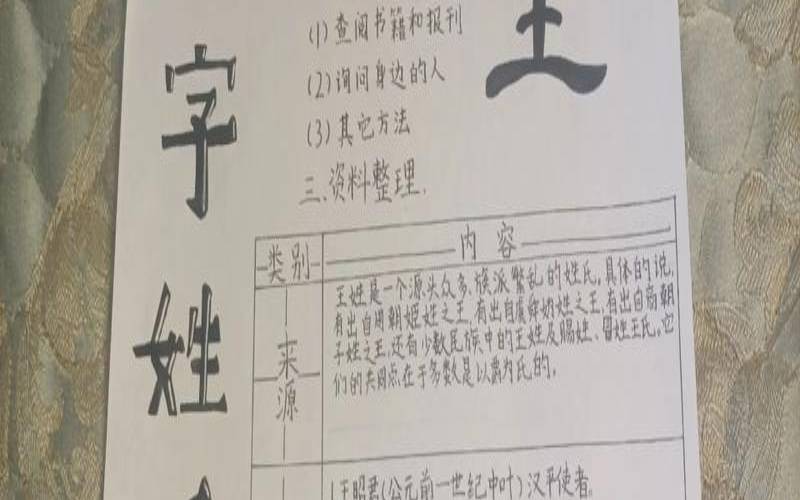 王
字
姓
(1)查阅书籍和报刊
(2)询问身边的人
(3)其它方法
三、资料整理.
类别
内容
来源
王姓是一个源头众多,族派繁乱的姓氏,具体的说,
有出自周朝姬姓之王,有出自虞舜妫姓之王,有出自商朝
子姓之王,还有少数民族中的王姓及赐姓、冒姓王氏,它
们的共同点在于多数是以爵为氏的。
1王昭君(公元前一世纪中叶)汉平使者